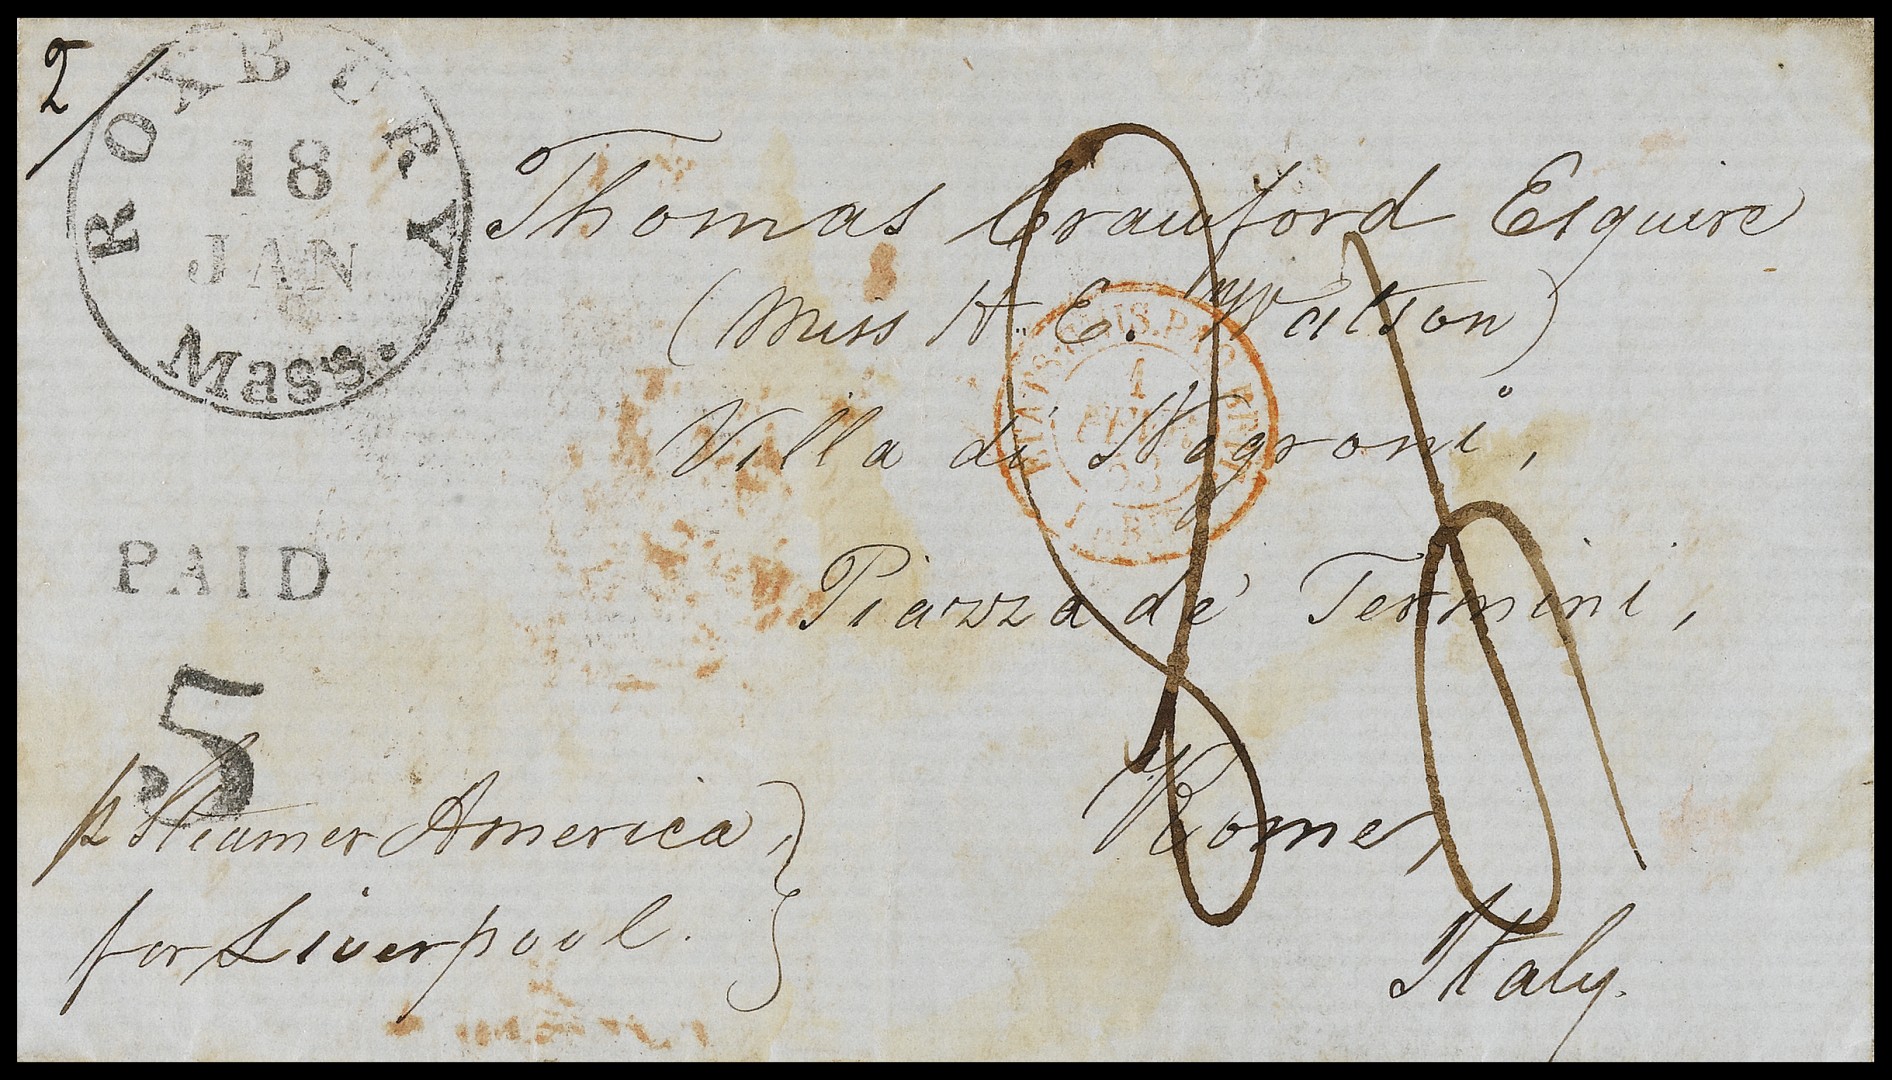 2/
ROXBURY
18
JAN
Mass.
Thomas Crawford Esquire
(Miss H. E. Watson)
Villa di Negroni,
Piazza de' Termini,
Rome,
Italy.
PAID
5
p Steamer America,
for Liverpool.
1